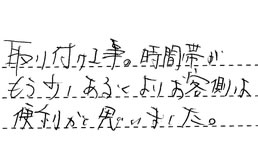 取り付け工事。時間帯が
もう少しあるとよりお客側は
便利かと思いました。